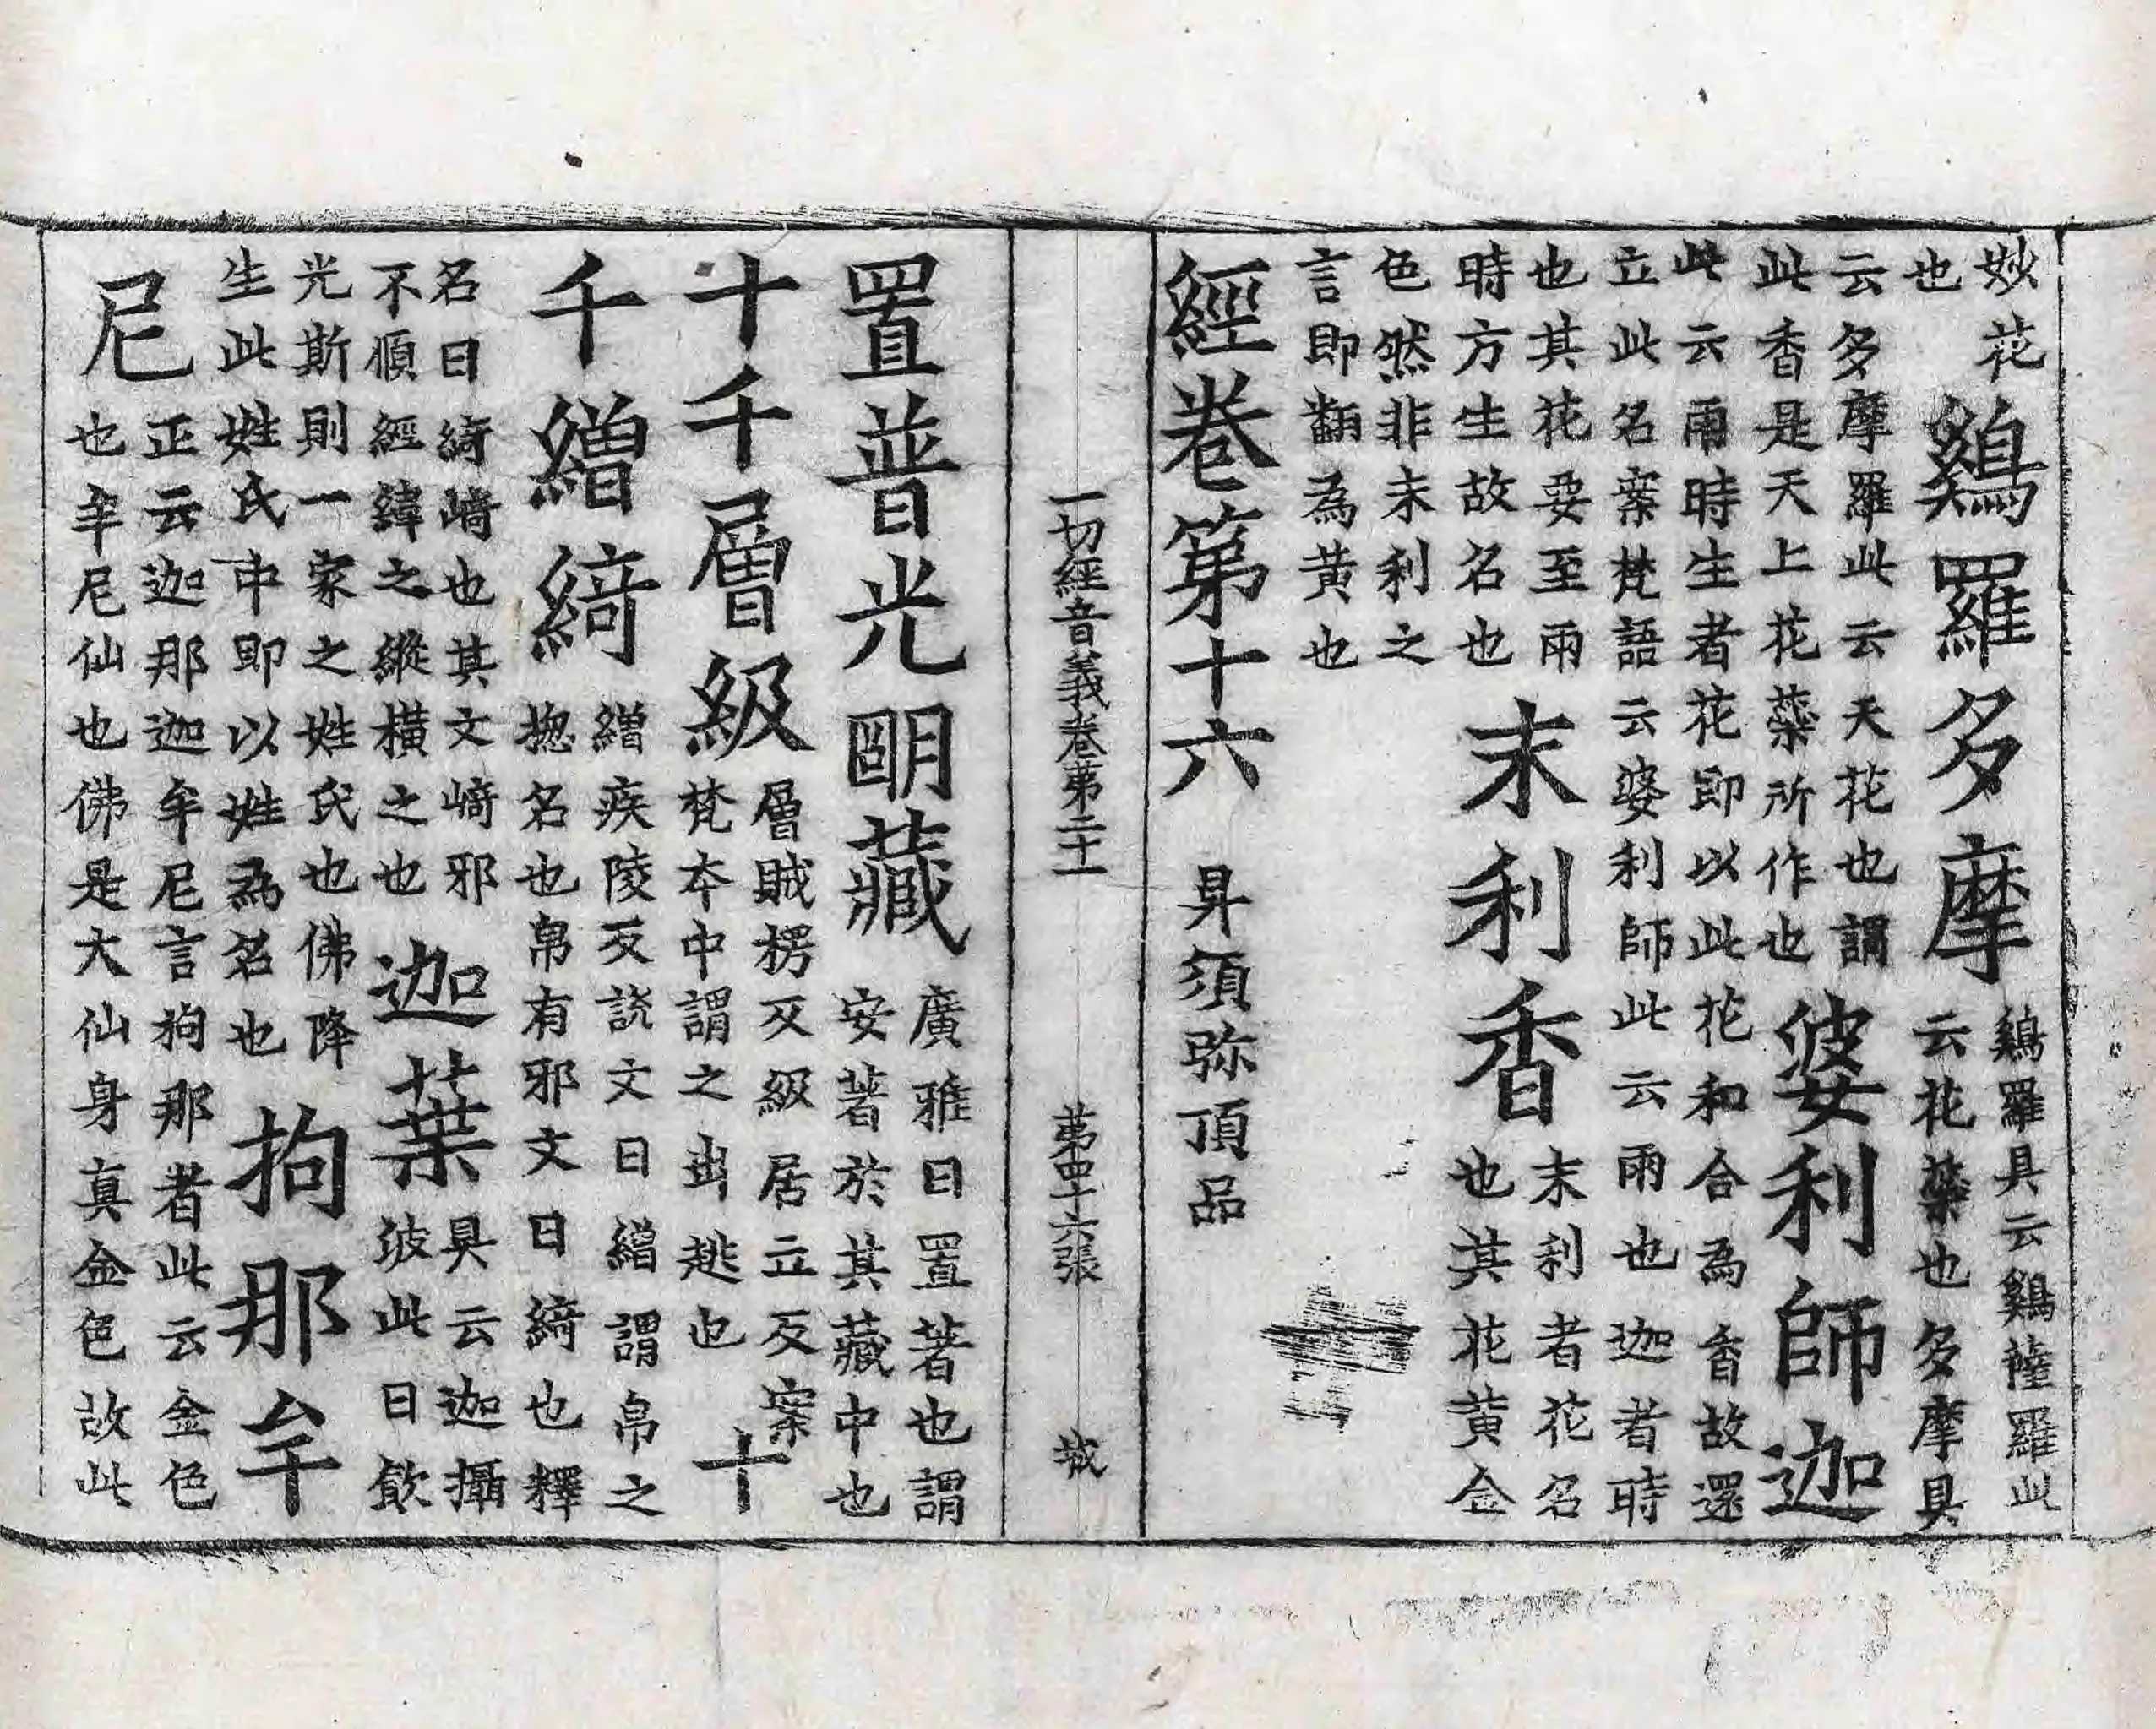 妙花
也
鷄羅多摩
鷄羅具云鷄薩羅此
云花蘂也多摩具
云多摩羅此云天花也謂
此香是天上花蘂所作也
婆利師迦
此云雨時生者花即以此花和合為香故還
立此名案梵語云婆利師此云雨也迦者時
也其花要至雨
時方生故名也
末利香
末利者花名
也其花黃金
色然非末利之
言即翻為黃也
經卷第十六 昇須弥頂品
一切經音義卷第二十一 第四十六張 城
置普光明藏
廣雅曰置著也謂
安著於其藏中也
十千層級
層賊楞反級居立反案
梵本中謂之出趒也
十
千繒綺
繒疾陵反說文曰繒謂帛之
揔名也帛有邪文曰綺也釋
名曰綺崎也其文崎邪
不順經緯之縱橫之也
迦葉
具云迦攝
波此曰飲
光斯則一家之姓氏也佛降
生此姓氏中即以姓為名也
拘那牟
尼
正云迦那迦牟尼言拘那者此云金色
也牟尼仙也佛是大仙身真金色故此